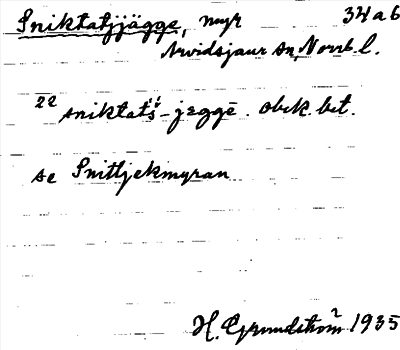 Sniktatjjägge, myr 34ab
Arvidsjaur sn, Norrb l.
22 sniktatś-jeggē. obek. bet.
se Snittjekmyran
H. Grundström 1935